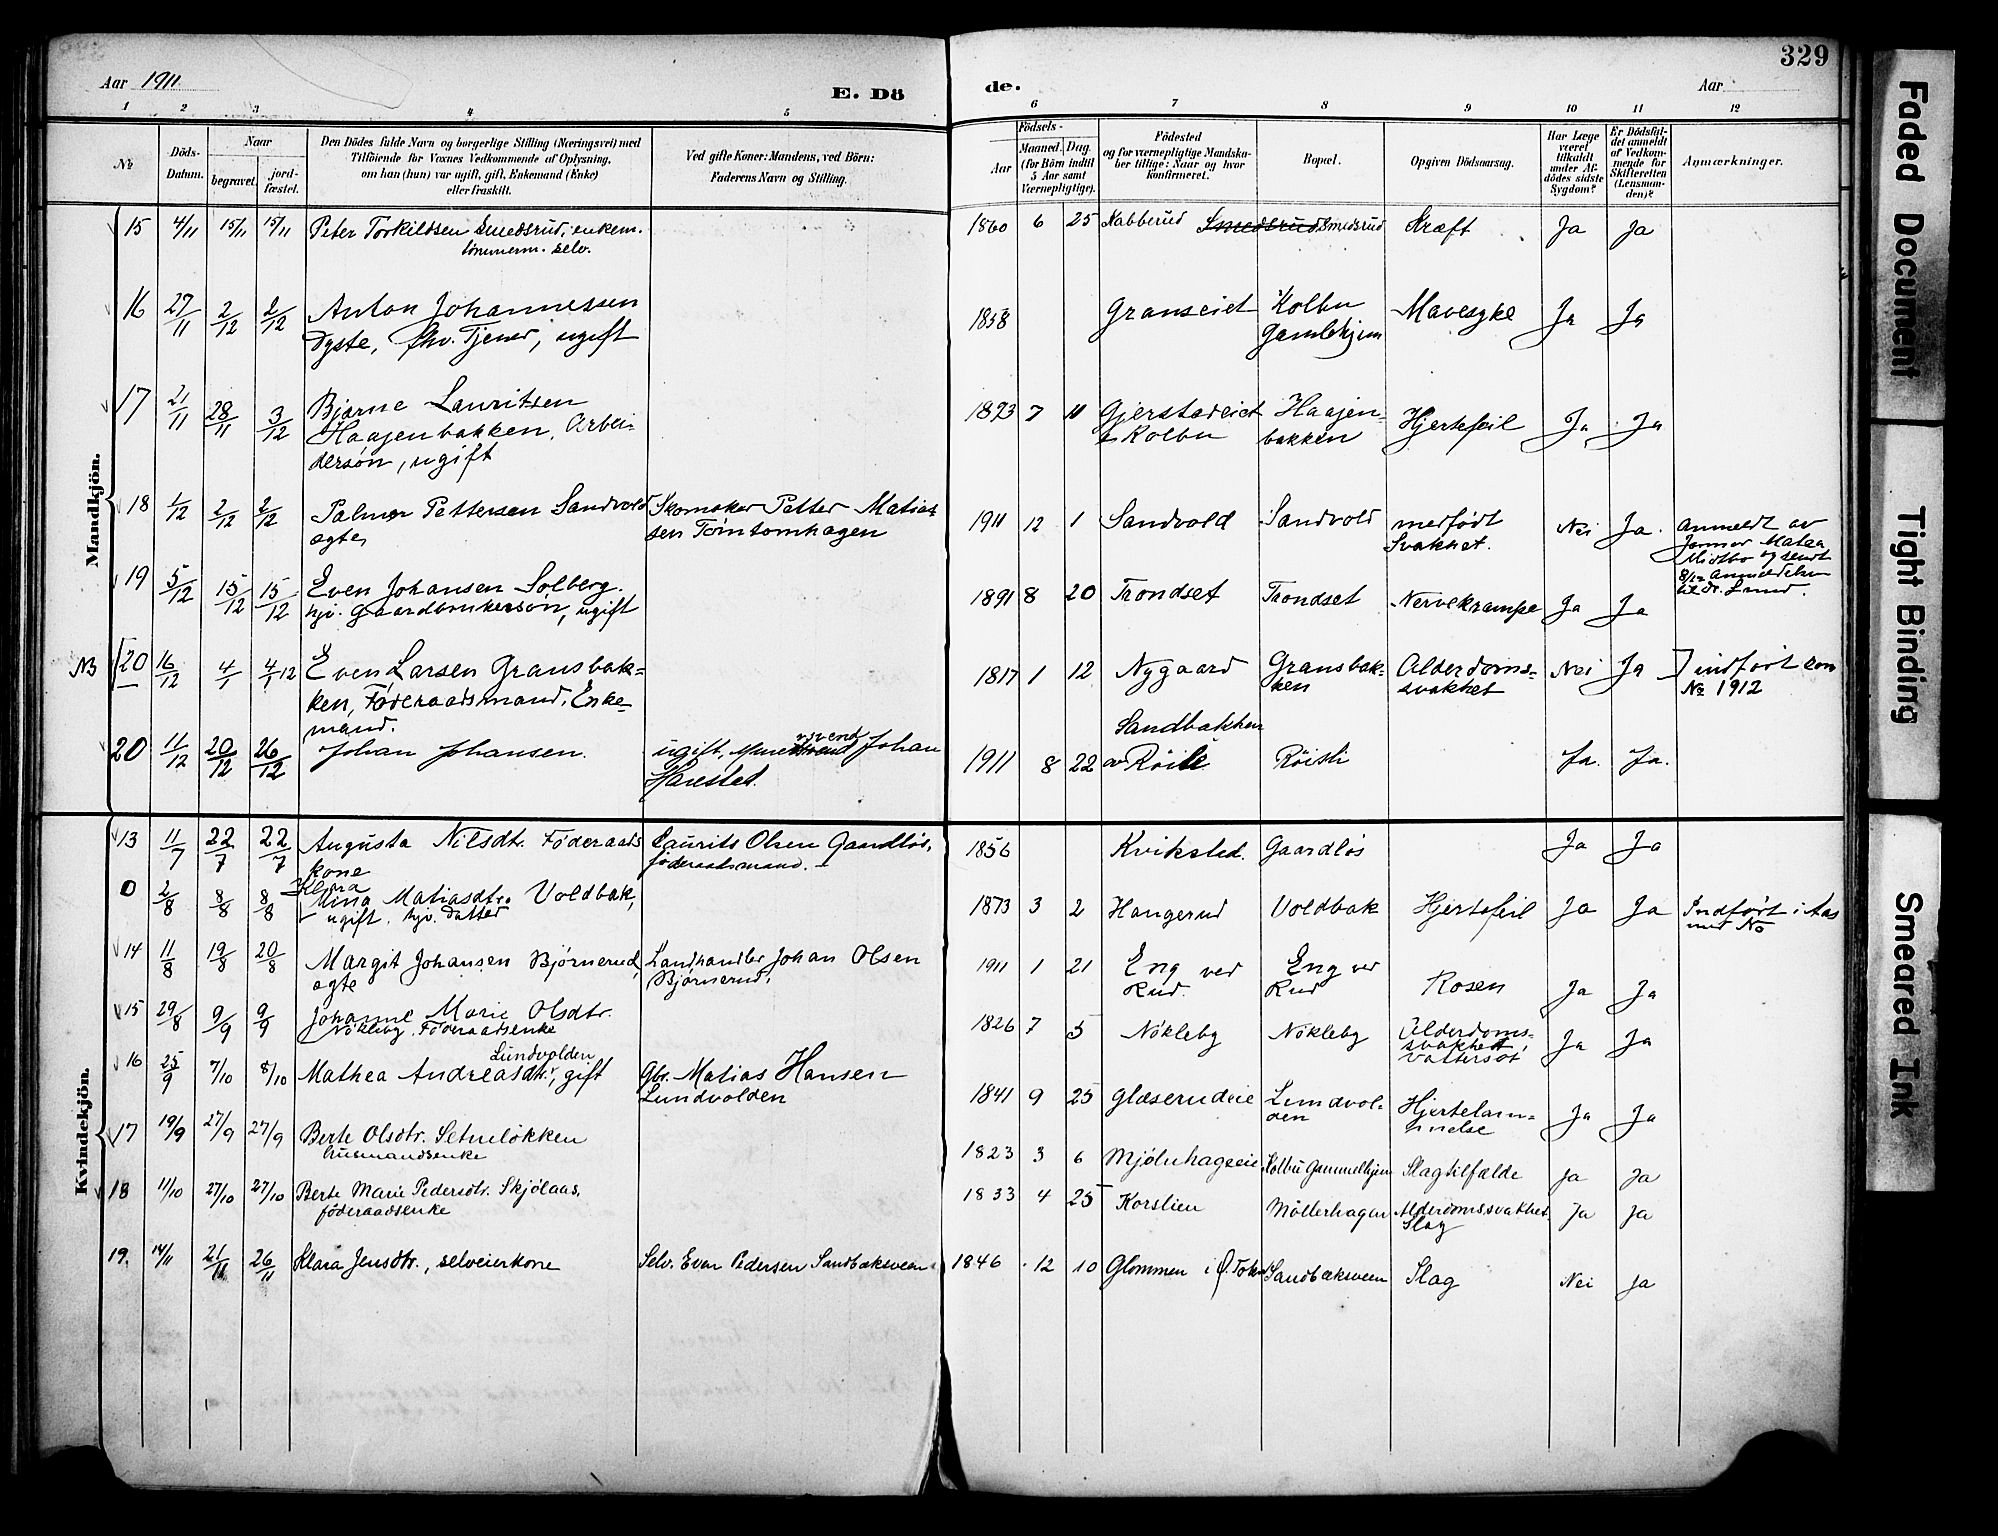 329
Aar 1911
E. Dö
de.
Aar
1 2 3 4 5 6 7 8 9 10 11 12
№
Döds-Datum.
Naar
begravet.
jord-fæstet.
Den Dödes fulde Navn og borgerlige Stilling (Næringsvei) med
Tilföiende for Voxnes Vedkommende af Oplysning,
om han (hun) var ugift, gift, Enkemand (Enke)
eller fraskilt.
Ved gifte Koner: Mandens, ved Börn:
Faderens Navn og Stilling.
Födsels-
Aar
Maaned. Dag.
(for Börn indtil
5 Aar samt
Værnepligtige).
Födested
og for værnepligtige Mandska-
ber tillige: Naar og hvor
konfirmeret.
Bopæl.
Opgiven Dödsaarsag.
Har Læge
været
tilkaldt
under Af-
dödes sidste
Sygdom?
Er Dödsfal-
det anmeldt
af Vedkom-
mende for
Skifteretten
(Lensman-
den)?
Anmærkninger.
Mandkjön.
15 4/11 15/11 15/11 Peter Torkildsen Smedsrud, enkem. 1860 6 25 Nabberud Smedsrud Smedsrud Kræft Ja Ja
tømmerm. selv.
16 27/11 2/12 2/12 Anton Johannessen 1858 Granseiet Kolbu Mavesyke Ja Ja
Dyste, fhv. Tjener, ugift Gamlehjem
17 21/11 28/11 3/12 Bjarne Lauritsen 1893 7 11 Gjerstadeiet Haajen- Hjertefeil Ja Ja
Haajenbakken, Arbei- Kolbu bakken
dersøn, ugift
18 1/12 2/12 2/12 Palmer Pettersen Sandvold Skomaker Petter Matias- 1911 12 1 Sandvold Sandvold medfødt Nei Ja Anmeldt av
ægte sen Tøntomhagen Svakhet. Jormor Matea
Midtbo og sendt
8/12 Anmeldelse
til dr. Lund.
19 5/12 15/12 15/12 Even Johansen Solberg. 1891 8 20 Trondset Trondset Nervekrampe Ja Ja
hjv. gaardbrukersøn, ugift
NB [20 16/12 4/1 4/1 12 Even Larsen Gransbak- 1817 1 12 Nygaard Gransbak- Alderdoms- Nei Ja ] indført som
ken, Føderaadsmand, Enke- ken svakhet № 1912
mand.
20 11/12 20/12 26/12 Johan Johansen. ugift, Johan 1911 8 22 Sandbakken Røisli Ja. Ja.
Harestet.
Kvindekjön.
13 11/7 22/7 22/7 Augusta Nilsdt. Føderaads Laurits Olsen Gaardløs, 1856 Kviksted. Gaardløs Ja Ja
kone føderaadsmand.
0 2/8 8/8 8/8 Klara
Mina Matiasdtr. Voldbak, 1873 3 2 Hangerud Voldbak Hjertefeil Ja Ja Indført i Aas
ugift. hjv. Datter med No
14 11/8 19/8 20/8 Margit Johansen Bjørnerud, Landhandler Johan Olsen 1911 1 21 Eng ved Eng ved Rosen Ja Ja
ægte Bjørnerud. Rud. Rud
15 29/8 9/9 9/9 Johanne Marie Olsdtr. 1826 7 5 Nökleby Nökleby Alderdoms- Ja Ja
Nökleby. Føderaadsenke svakhet,
vattersot
16 25/9 7/10 8/10 Lundvolden
Mathea Andreasdtr., gift Gbr. Matias Hansen 1841 9 25 Glæserudeie Lundvol- Hjertelam- Ja Ja
Lundvolden den melse
17 19/9 27/9 27/9 Berte Olsdtr. Setneløkken 1823 3 6 Mjølnhageeie Kolbu Gammelhjem Slagtilfælde Ja Ja
husmandsenke
18 11/10 27/10 27/10 Berte Marie Pedersdtr. Skjølaas, 1833 4 25 Korslien Möllerhagen Alderdomssvakhet. Ja Ja
føderaadsenke Slag
19. 14/11 21/11 26/11 Klara Jensdtr., selveierkone Selv. Even Pedersen Sandbæksveen 1846 12 10 Glommen i Ø. Toten Sandbæksveen Slag Nei Ja
Faded Document
Tight Binding
Smeared Ink